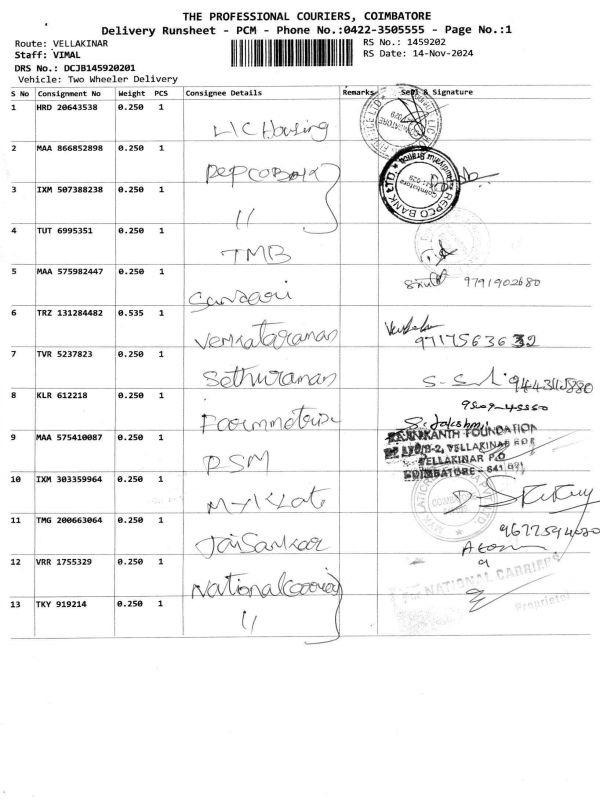 THE PROFESSIONAL COURIERS, COIMBATORE
Delivery Runsheet - PCM - Phone No.:0422-3505555 - Page No.:1
Route: VELLAKINAR
RS No.: 1459202
Staff: VIMAL
RS Date: 14-Nov-2024
DRS No.: DCJB145920201
Vehicle: Two Wheeler Delivery
S No Consignment No Weight PCS Consignee Details Remarks Seal & Signature
1 HRD 20643538 0.250 1 LIC Housing
2 MAA 866852898 0.250 1 REPCO Bank
REPCO BANK LTD.
Coimbatore
3 IXM 507388238 0.250 1 "
4 TUT 6995351 0.250 1 TMB
5 MAA 575982447 0.250 1 9791902680
6 TRZ 131284482 0.535 1 Venkataraman
7 TVR 5237823 0.250 1 Sethuraman
8 KLR 612218 0.250 1
9 MAA 575410087 0.250 1 PSM
FOUNDATION
VELLAKINAR P.O
COIMBATORE - 641 029
10 IXM 303359964 0.250 1
11 TMG 200663064 0.250 1 Jaisankar
12 VRR 1755329 0.250 1 National
NATIONAL CARRIERS
Proprietor
13 TKY 919214 0.250 1 "